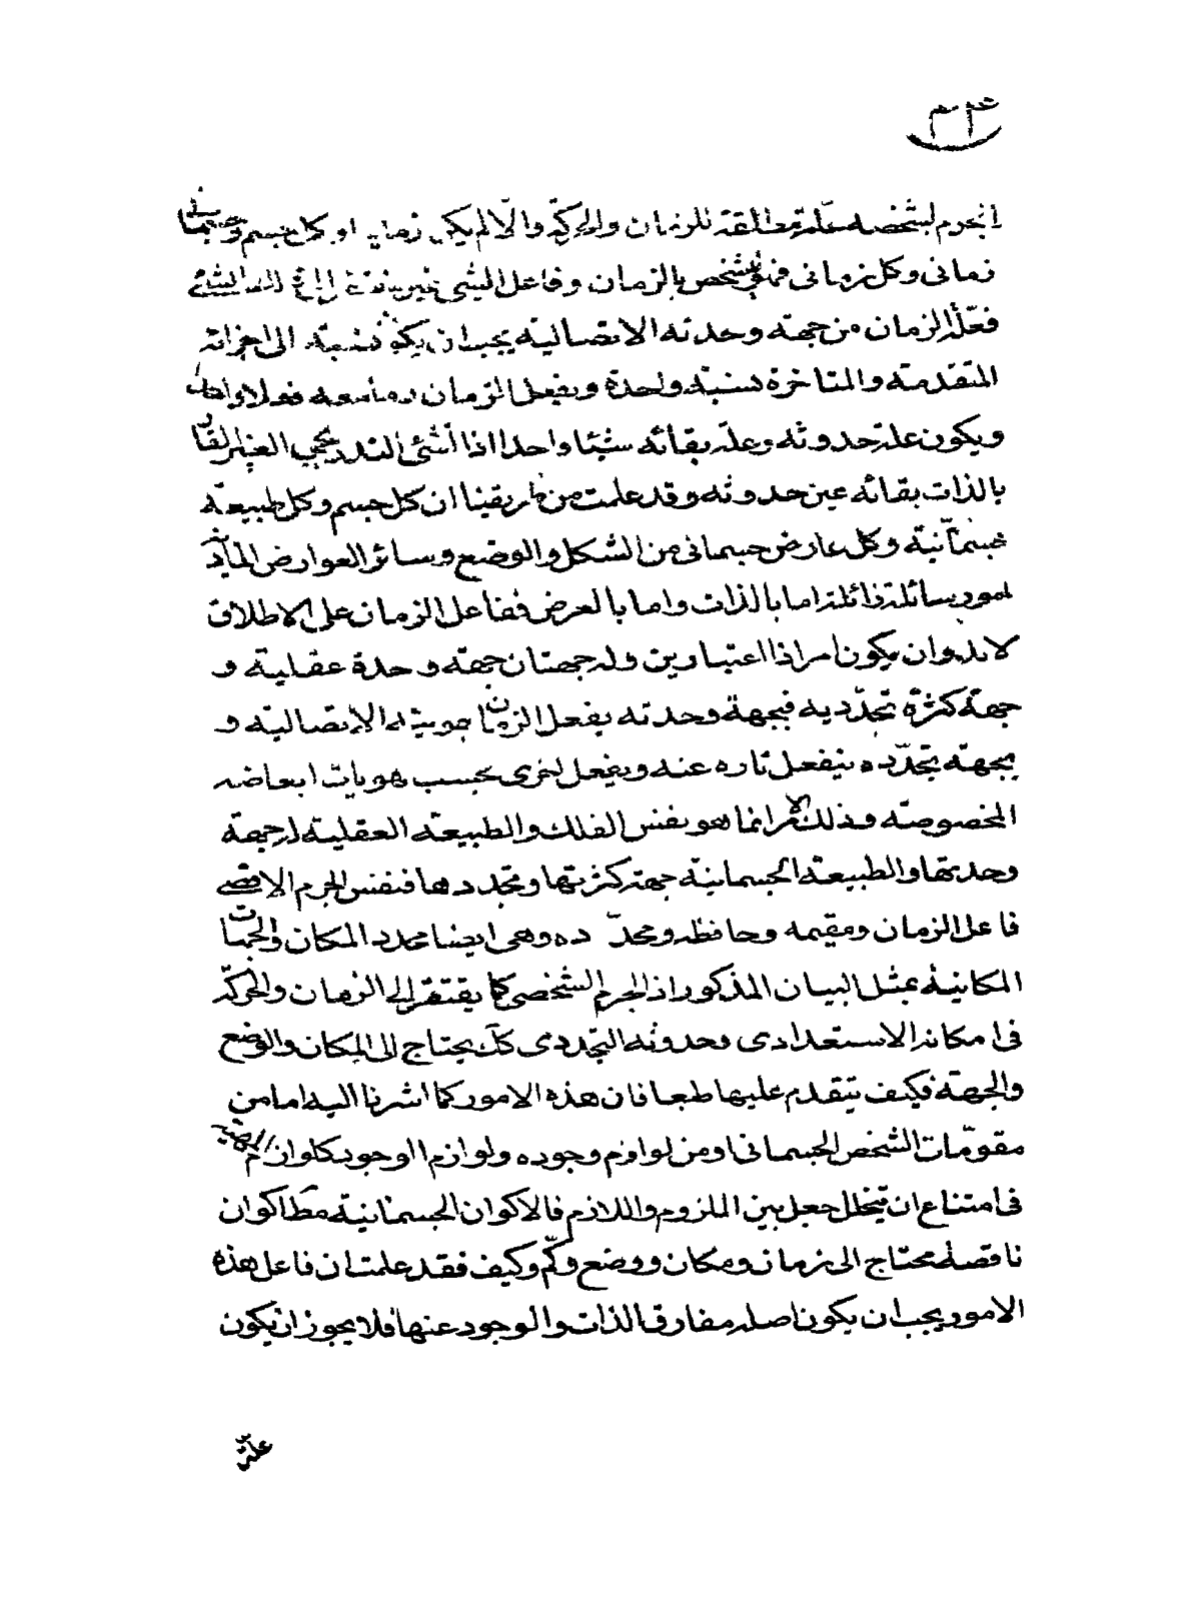 الجرم بشخصه علة مطلقة للزمان والحركة والا لم يكن زمانيا و كل جسم وجسمانى
زمانى وكل زمانى فهو متشخص بالزمان وفاعل الشى غير مفتقر الى ذلك الشئ
فعلة الزمان من جهة وحدته الاتصالية يجب ان يكون نسبته الى اجزائه
المتقدمة والمتاخرة نسبة واحدة ويفعل الزمان مع ما معه فعلا واحدا
ويكون علة حدوثه وعلة بقائه شيئا واحدا اذ الشئ التدريجى الغير القار
بالذات بقائه عين حدوثه وقد علمت من طريقينا ان كل جسم وكل طبيعة
جسمانية وكل عارض جسمانى من الشكل والوضع وسائر العوارض المادية
امور سائلة زائلة اما بالذات واما بالعرض ففاعل الزمان على الاطلاق
لابد وان يكون امرا ذا اعتبارين وله جهتان جهة وحدة عقلية و
جهة كثرة تجددية فبجهة وحدته يفعل الزمان بهويته الاتصالية و
بجهة تجدده ينفعل تاره عنه ويفعل اخرى بحسب هويات ابعاضه
المخصوصة وذلك الامر انما هو نفس الفلك والطبيعة العقلية له جهة
وحدتها والطبيعة الجسمانية جهة كثرتها وتجددها فنفس الجرم الاقصى
فاعل الزمان ومقيمه وحافظه ومحدده وهى ايضا محدد المكان والجهات
المكانية بمثل البيان المذكور اذ الجرم الشخصى كما يفتقر الى الزمان والحركة
فى امكانه الاستعدادى وحدوثه التجددى كك يحتاج الى المكان والوضع
والجهة فكيف يتقدم عليها طبعا فان هذه الامور كما اشرنا اليه اما من
مقومات الشخص الجسمانى او من لوازم وجوده ولوازم الوجود كلوازم المهية
فى امتناع ان يتخلل جعل بين الملزوم واللازم فالاكوان الجسمانية مطا اكوان
ناقصة محتاج الى زمان ومكان ووضع وكم وكيف فقد علمت ان فاعل هذه
الامور يجب ان يكون اصله مفارق الذات والوجود عنها فلا يجوز ان يكون
علة